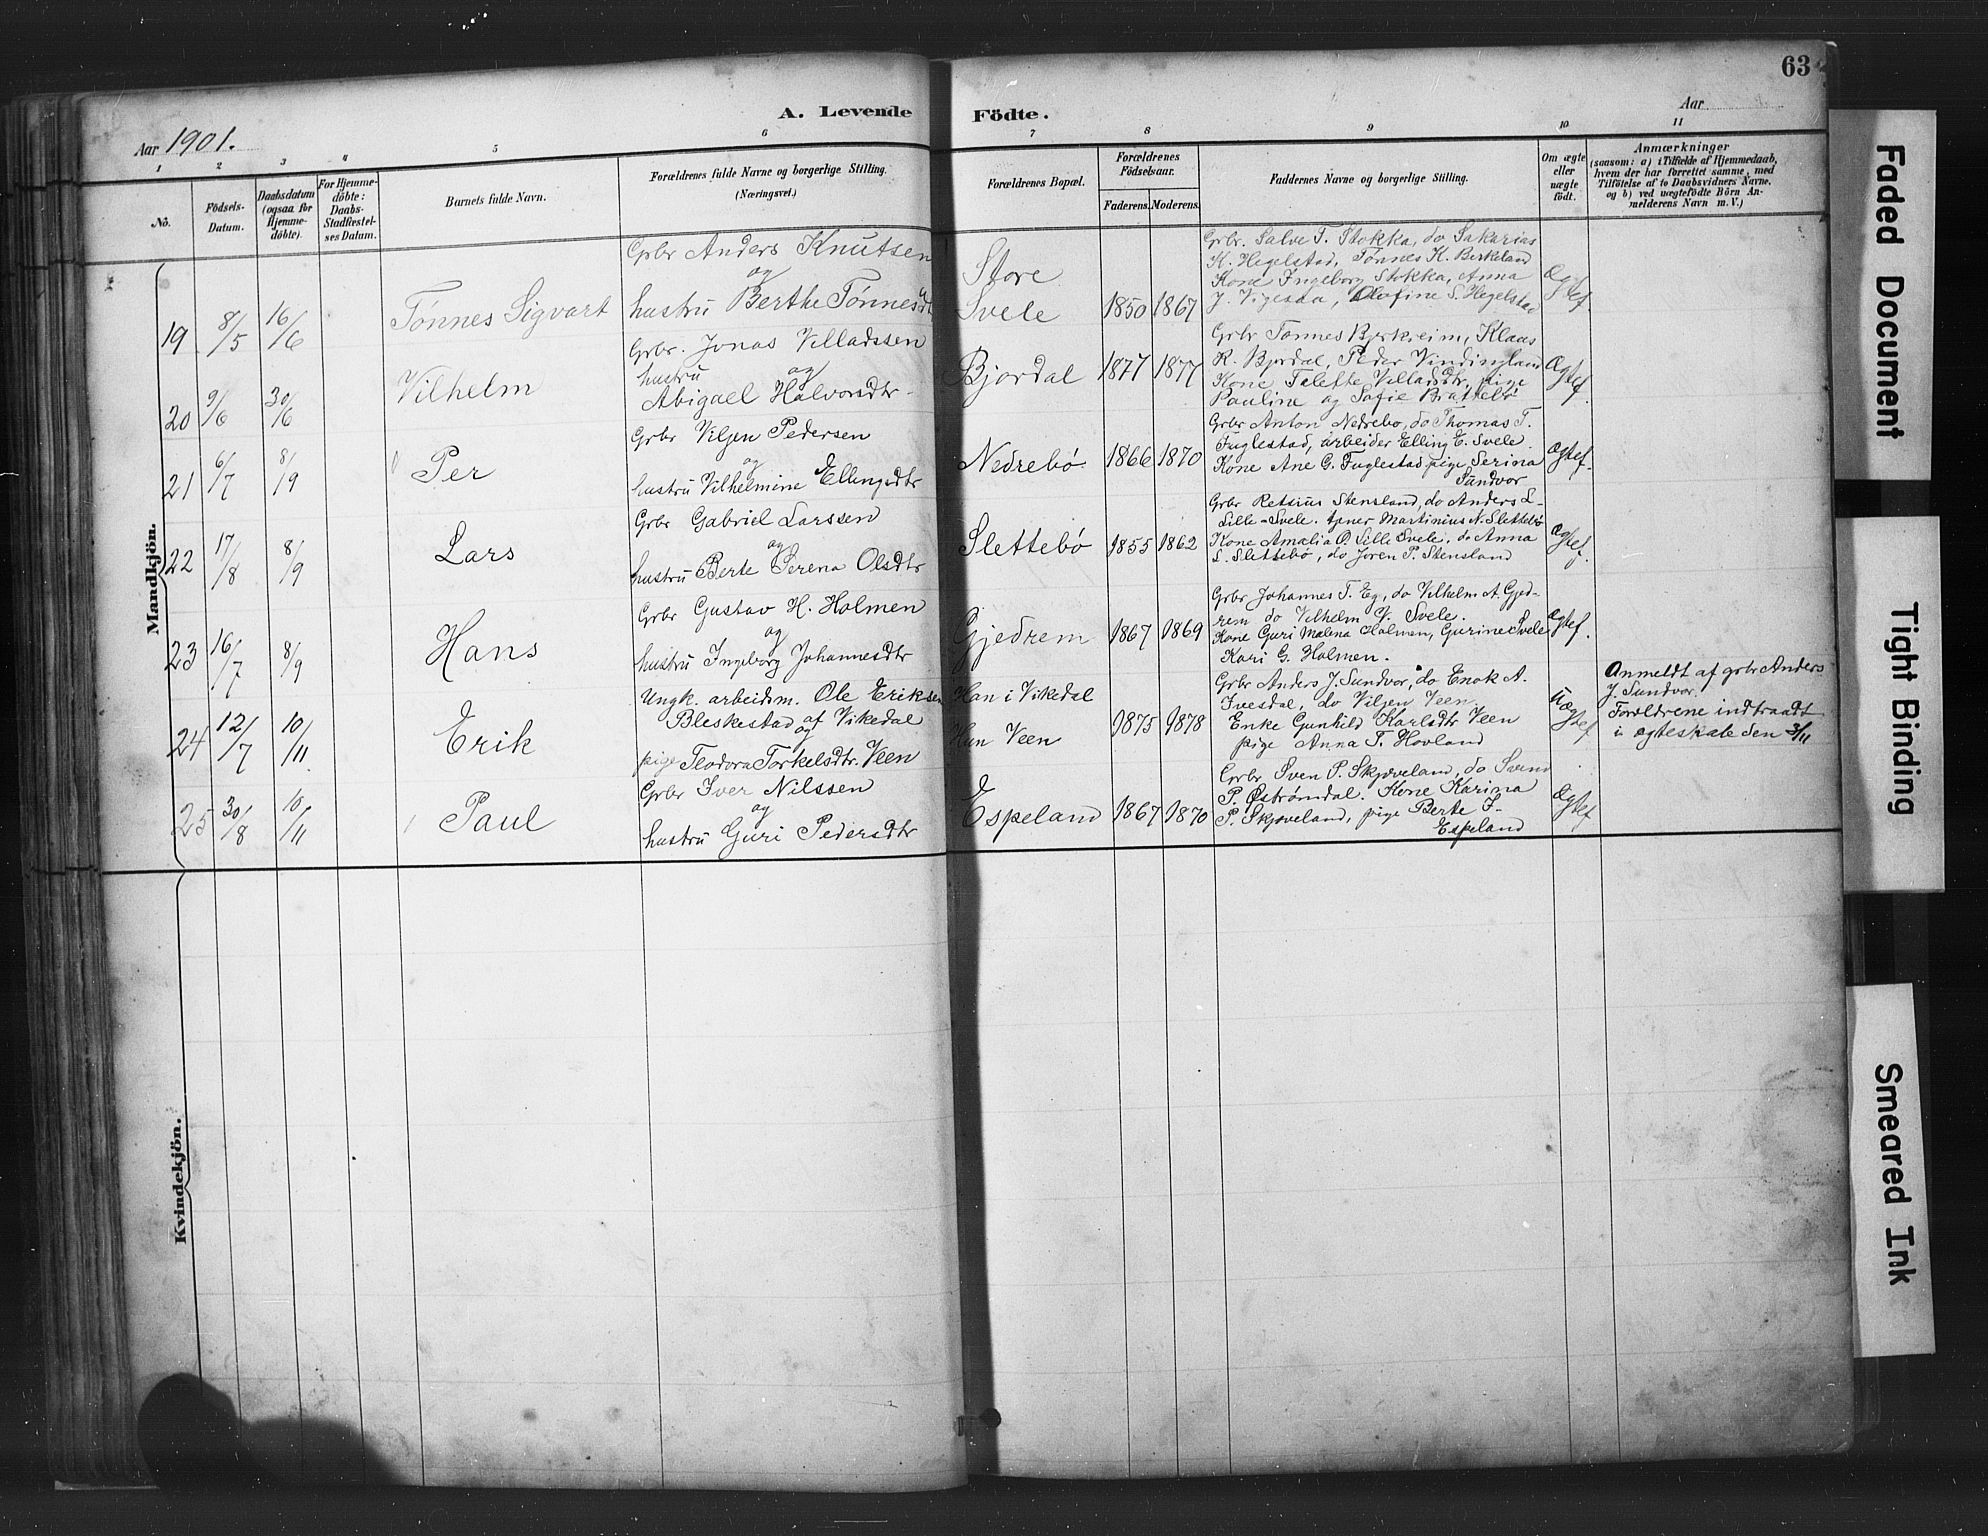 63
A. Levende Födte.
Aar 1901.
Aar
1 2 3 4 5 6 7 8 9 10 11
No.
Födsels-Datum.
Daabsdatum (ogsaa for Hjemme-döbte).
For Hjemme-döbte: Daabs-Stadfestel-ses Datum.
Barnets fulde Navn.
Forældrenes fulde Navne og borgerlige Stilling. (Næringsvei.)
Forældrenes Bopæl.
Forældrenes Födselsaar.
Faderens. Moderens.
Faddernes Navne og borgerlige Stilling.
Om ægte eller uægte födt.
Anmærkninger
(saasom: a) i Tilfælde af Hjemmedaab,
hvem der har forrettet samme, med
Tilföielse af to Daabsvidners Navne,
og b) ved uægtefödte Börn An-
melderens Navn m. V.)
Mandkjön.
19 8/5 16/6 Tønnes Sigvart
Grbr Anders Knutsen
og
hustru Berthe Tønnesdt
Store
Svele 1850 1867
Grbr. Salve T. Stokka, do Sakarias
H. Hegelstad, Tønnes H. Berkland
Kone Ingeborg Stokka, Anna
J. Vigesaa, Olofine S. Hegelstad
Ægtef.
20 9/6 30/6 Vilhelm
Grbr. Jonas Villadssen
hustru og
Abigael Halvorsdtr
Bjordal 1877 1877
Grbr Tønnes Bjerkreim, Klaus
R. Bjordal, Peder Vindingland
Kone Talette Villadsdtr, pige
Pauline og Sofie Brattebø
Ægtef.
21 6/7 8/9 Per
Grbr Viljen Pedersen
og
hustru Vilhelmine Ellingsdtr
Nedrebø 1866 1870
Grbr Anton Nedrebø, do Thomas T.
Fuglestad, arbeider Elling E. Svele.
Kone Ane G. Fuglestad pige Serina
Sundvor
Ægtef.
22 17/8 8/9 Lars
Grbr Gabriel Larssen
og
hustru Berte Serena Olsdtr
Slettebø 1855 1862
Grbr Retsius Stensland, do Anders L.
Lille-Svele. tjener Martinius N. Slettebø
Kone Amalia O. Lille Svele, do Anna
L. Slettebø, do Joren P. Stensland
Ægtef.
23 16/7 8/9 Hans
Grbr Gustav H. Holmen
og
hustru Ingeborg Johannesdtr
Gjedrem 1867 1869
Grbr Johannes T. Eg, do Vilhelm A. Gjed-
rem do Vilhelm V. Svele.
Kone Guri Malena Holmen, Gurine Svele
Kari G. Holmen.
Ægtef.
24 12/7 10/11 Erik
Ungk. arbeidsm. Ole Eriksen
Bleskestad af Vikedal
og
pige Teodora Torkelsdtr. Veen
Han i Vikedal
Hun Veen 1875 1878
Grbr Anders J. Sundvor, do Enok A.
Ivesdal, do Viljen Veen
Enke Gunhild Karlsdtr Veen
pige Anna T. Hovland
Uægtef
Anmeldt af grbr Anders
J. Sundvor.
Foreldrene indtraadt
i ægteskab den 3/11
25 30/8 10/11 Paul
Grbr Iver Nilssen
og
hustru Guri Pedersdtr
Espeland 1867 1870
Grbr Sven P. Skjæveland, do Svend
P. Østrømdal. Kone Karina
P. Skjæveland, pige Berte I.
Espeland
Ægtef
Kvindekjön.
Faded Document
Tight Binding
Smeared Ink